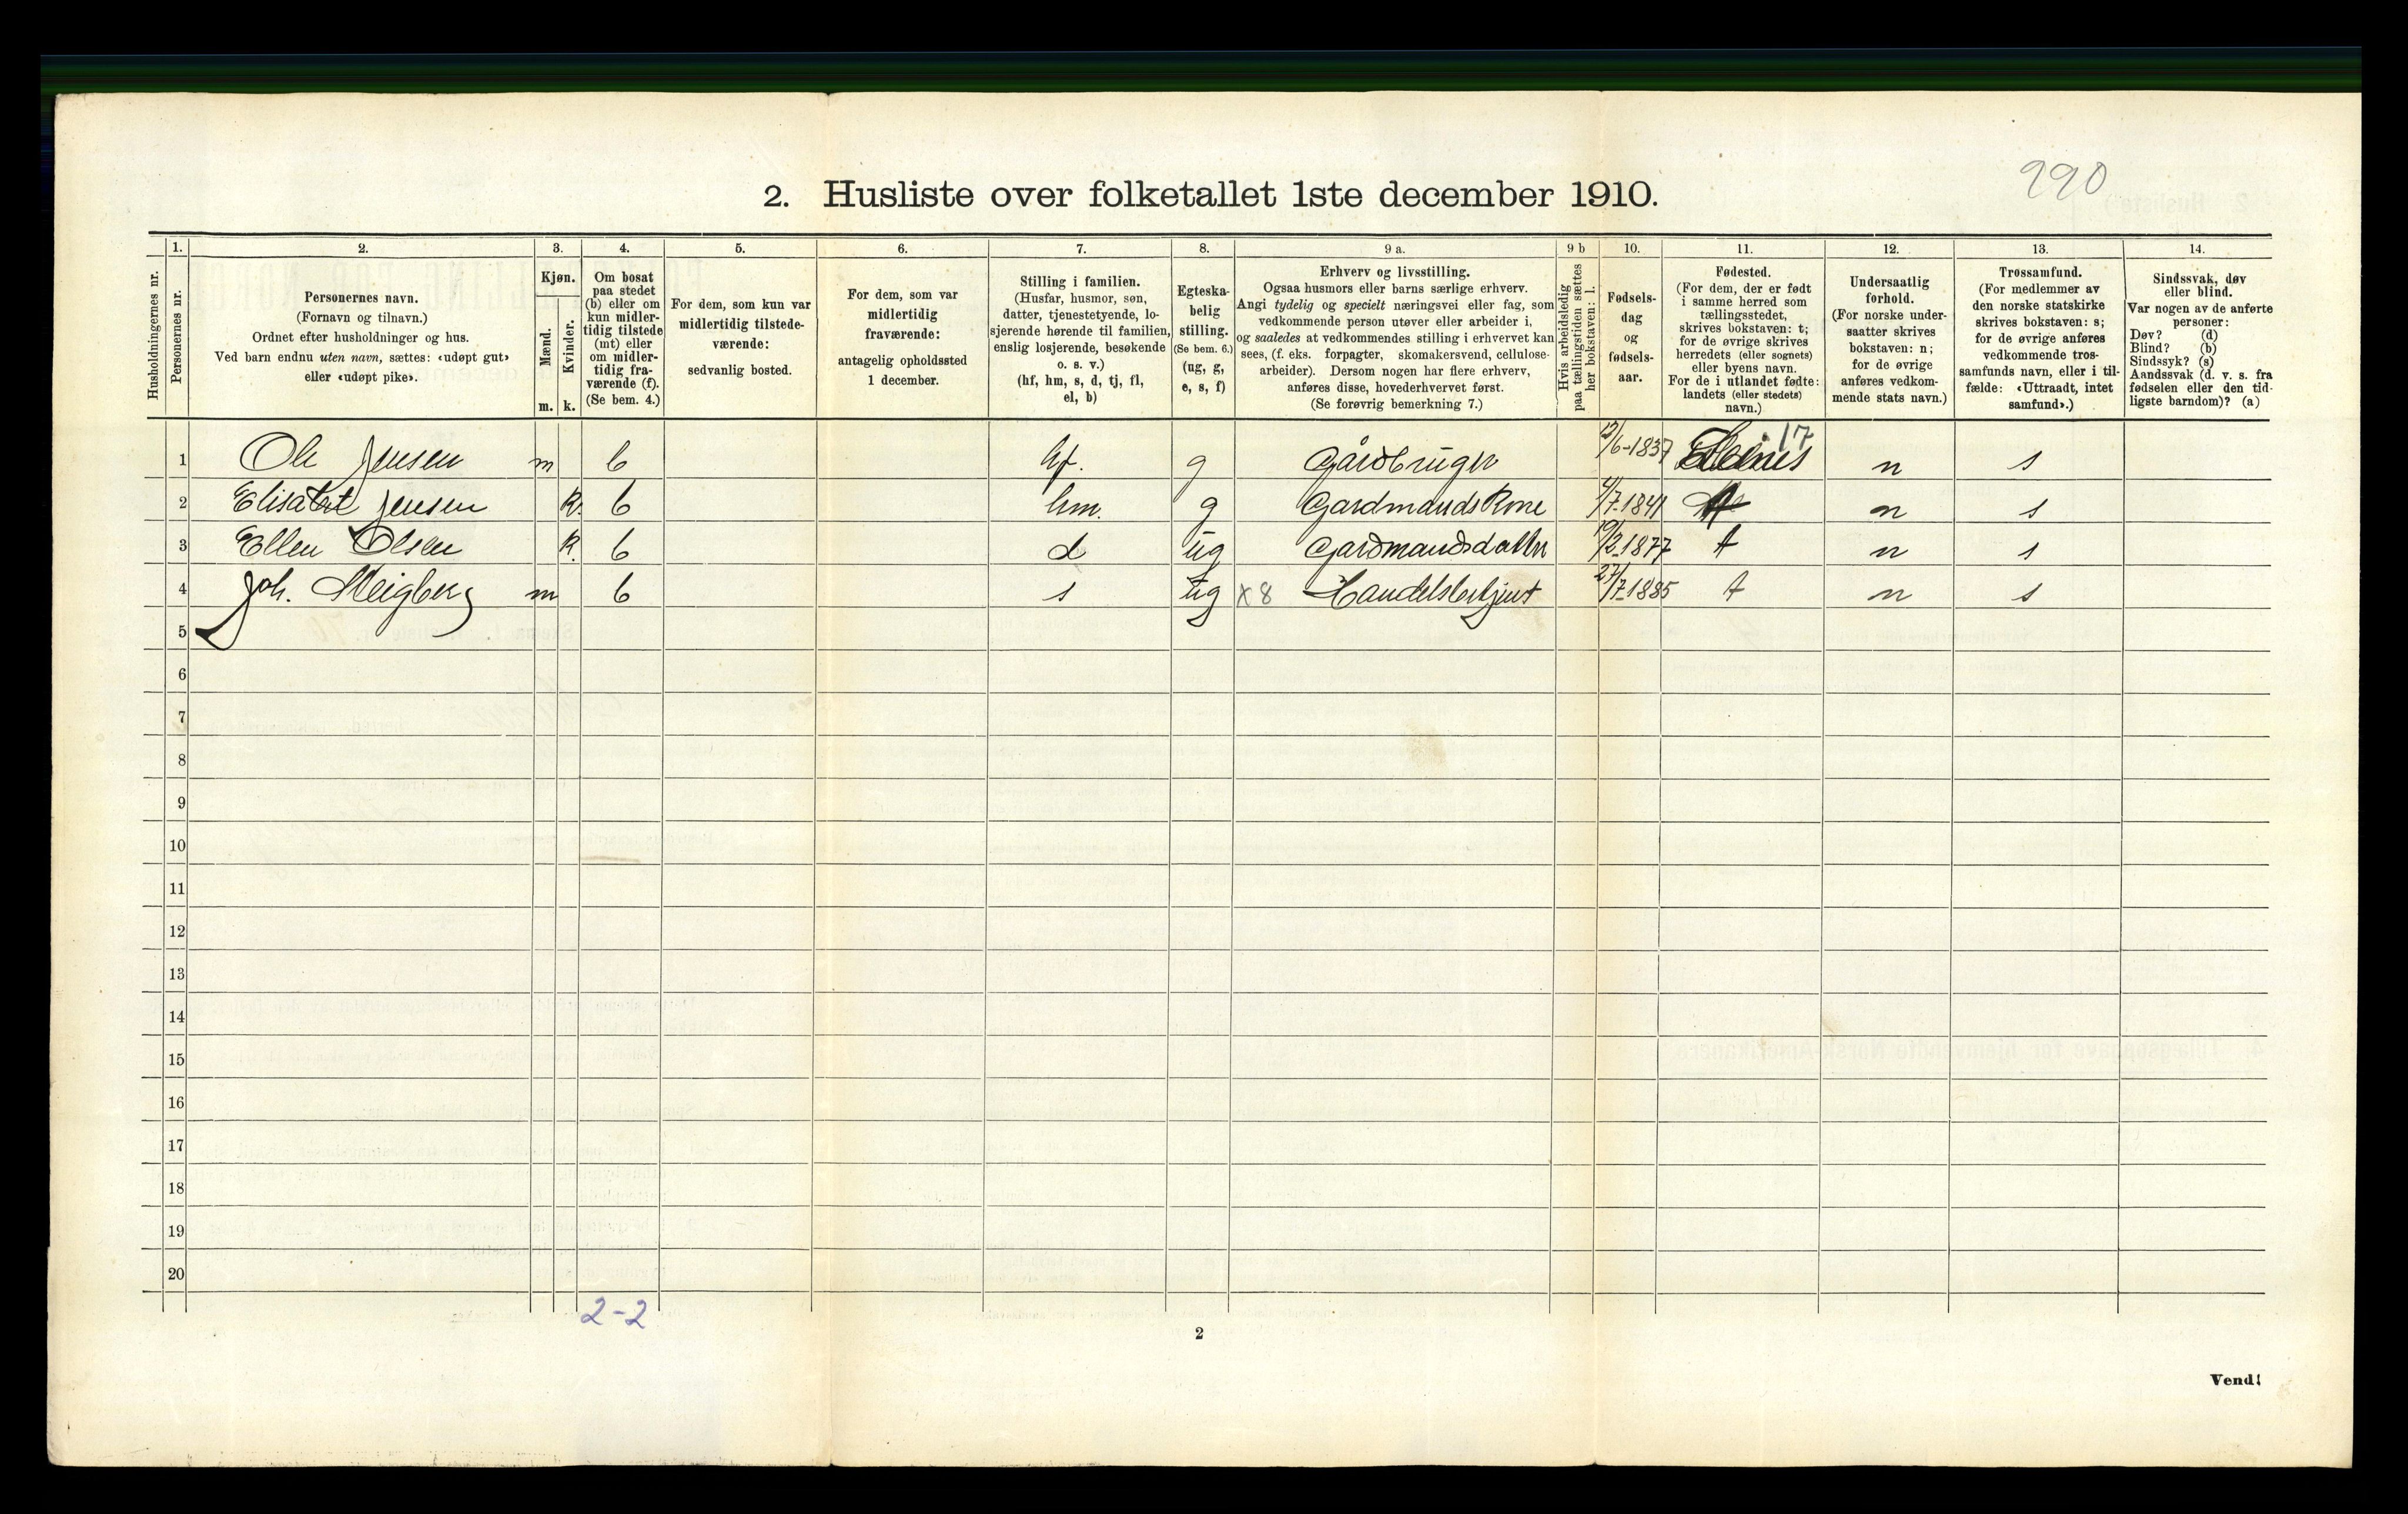 990
2. Husliste over folketallet 1ste december 1910.
Husholdningernes nr.
1.
Personernes nr.
2.
Personernes navn.
(Fornavn og tilnavn.)
Ordnet efter husholdninger og hus.
Ved barn endnu uten navn, sættes: «udøpt gut»
eller «udøpt pike».
3.
Kjøn.
Mænd.
Kvinder.
m. k.
4.
Om bosat
paa stedet
(b) eller om
kun midler-
tidig tilstede
(mt) eller
om midler-
tidig fra-
værende (f).
(Se bem. 4.)
5.
For dem, som kun var
midlertidig tilstede-
værende:
sedvanlig bosted.
6.
For dem, som var
midlertidig
fraværende:
antagelig opholdssted
1 december.
7.
Stilling i familien.
(Husfar, husmor, søn,
datter, tjenestetyende, lo-
sjerende hørende til familien,
enslig losjerende, besøkende
o. s. v.)
(hf, hm, s, d, tj, fl,
el, b)
8.
Egteska-
belig
stilling.
(Se bem. 6.)
(ug, g,
e, s, f)
9 a.
Erhverv og livsstilling.
Ogsaa husmors eller barns særlige erhverv.
Angi tydelig og specielt næringsvei eller fag, som
vedkommende person utøver eller arbeider i,
og saaledes at vedkommendes stilling i erhvervet kan
sees, (f. eks. forpagter, skomakersvend, cellulose-
arbeider). Dersom nogen har flere erhverv,
anføres disse, hovederhvervet først.
(Se forøvrig bemerkning 7.)
9 b
Hvis arbeidsledig
paa tællingstiden sættes
her bokstaven: l.
10.
Fødsels-
dag
og
fødsels-
aar.
11.
Fødested.
(For dem, der er født
i samme herred som
tællingsstedet,
skrives bokstaven: t;
for de øvrige skrives
herredets (eller sognets)
eller byens navn.
For de i utlandet fødte:
landets (eller stedets)
navn.)
12.
Undersaatlig
forhold.
(For norske under-
saatter skrives
bokstaven: n;
for de øvrige
anføres vedkom-
mende stats navn.)
13.
Trossamfund.
(For medlemmer av
den norske statskirke
skrives bokstaven: s;
for de øvrige anføres
vedkommende tros-
samfunds navn, eller i til-
fælde: «Uttraadt, intet
samfund».)
14.
Sindssvak, døv
eller blind.
Var nogen av de anførte
personer:
Døv? (d)
Blind? (b)
Sindssyk? (s)
Aandssvak (d. v. s. fra
fødselen eller den tid-
ligste barndom)? (a)
1 Ole Jensen m b hf. g Gårdbruger 12/6-1837 17 n s
2 Elisabet Jensen k. b hm. g Gardmandskone 4/7-1841 n s
3 Ellen Olsen k. b d ug Gardmandsdatter 19/2-1877 t n s
4 Joh. Meigberg m b s ug x8 Handelsbetjent 27/7-1885 t n s
5
6
7
8
9
10
11
12
13
14
15
16
17
18
19
20
2-2
2
Vend!